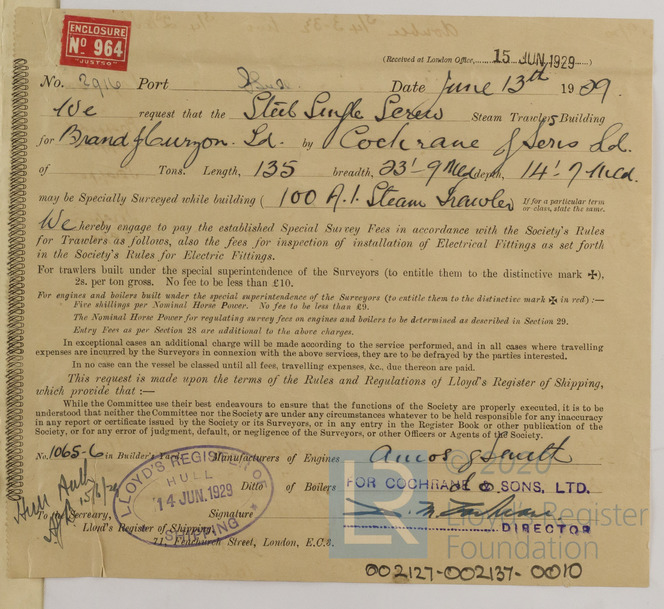 ENCLOSURE
No 964
"JUSTSO"
(Received at London Office, 15 JUN. 1929)
No. 3916 Port Date June 13th 1929.
We request that the Steel Single Screw Steam Trawlers Building
for Brand & Curzon. Ld. by Cochrane & Sons Ld.
of Tons. Length, 135 breadth, 23'-9 Mld depth, 14'-7 Mld.
may be Specially Surveyed while building ( 100 A.1. Steam Trawler If for a particular term or class, state the same.
We hereby engage to pay the established Special Survey Fees in accordance with the Society's Rules
for Trawlers as follows, also the fees for inspection of installation of Electrical Fittings as set forth
in the Society's Rules for Electric Fittings.
For trawlers built under the special superintendence of the Surveyors (to entitle them to the distinctive mark ✠),
2s. per ton gross. No fee to be less than £10.
For engines and boilers built under the special superintendence of the Surveyors (to entitle them to the distinctive mark ✠ in red) :—
Five shillings per Nominal Horse Power. No fee to be less than £9.
The Nominal Horse Power for regulating survey fees on engines and boilers to be determined as described in Section 29.
Entry Fees as per Section 28 are additional to the above charges.
In exceptional cases an additional charge will be made according to the service performed, and in all cases where travelling
expenses are incurred by the Surveyors in connexion with the above services, they are to be defrayed by the parties interested.
In no case can the vessel be classed until all fees, travelling expenses, &c., due thereon are paid.
This request is made upon the terms of the Rules and Regulations of Lloyd's Register of Shipping,
which provide that :—
While the Committee use their best endeavours to ensure that the functions of the Society are properly executed, it is to be
understood that neither the Committee nor the Society are under any circumstances whatever to be held responsible for any inaccuracy
in any report or certificate issued by the Society or its Surveyors, or in any entry in the Register Book or other publication of the
Society, or for any error of judgment, default, or negligence of the Surveyors, or other Officers or Agents of the Society.
No. 1065-6 in Builder's Yard. Manufacturers of Engines Amos & Smith
Ditto of Boilers
LLOYD'S REGISTER OF SHIPPING
HULL
14 JUN. 1929
FOR COCHRANE & SONS, LTD.
DIRECTOR
To the Secretary, Signature
Lloyd's Register of Shipping,
71, Fenchurch Street, London, E.C.3.
© 2020
LR
Lloyd's Register
Foundation
002127-002137-0010